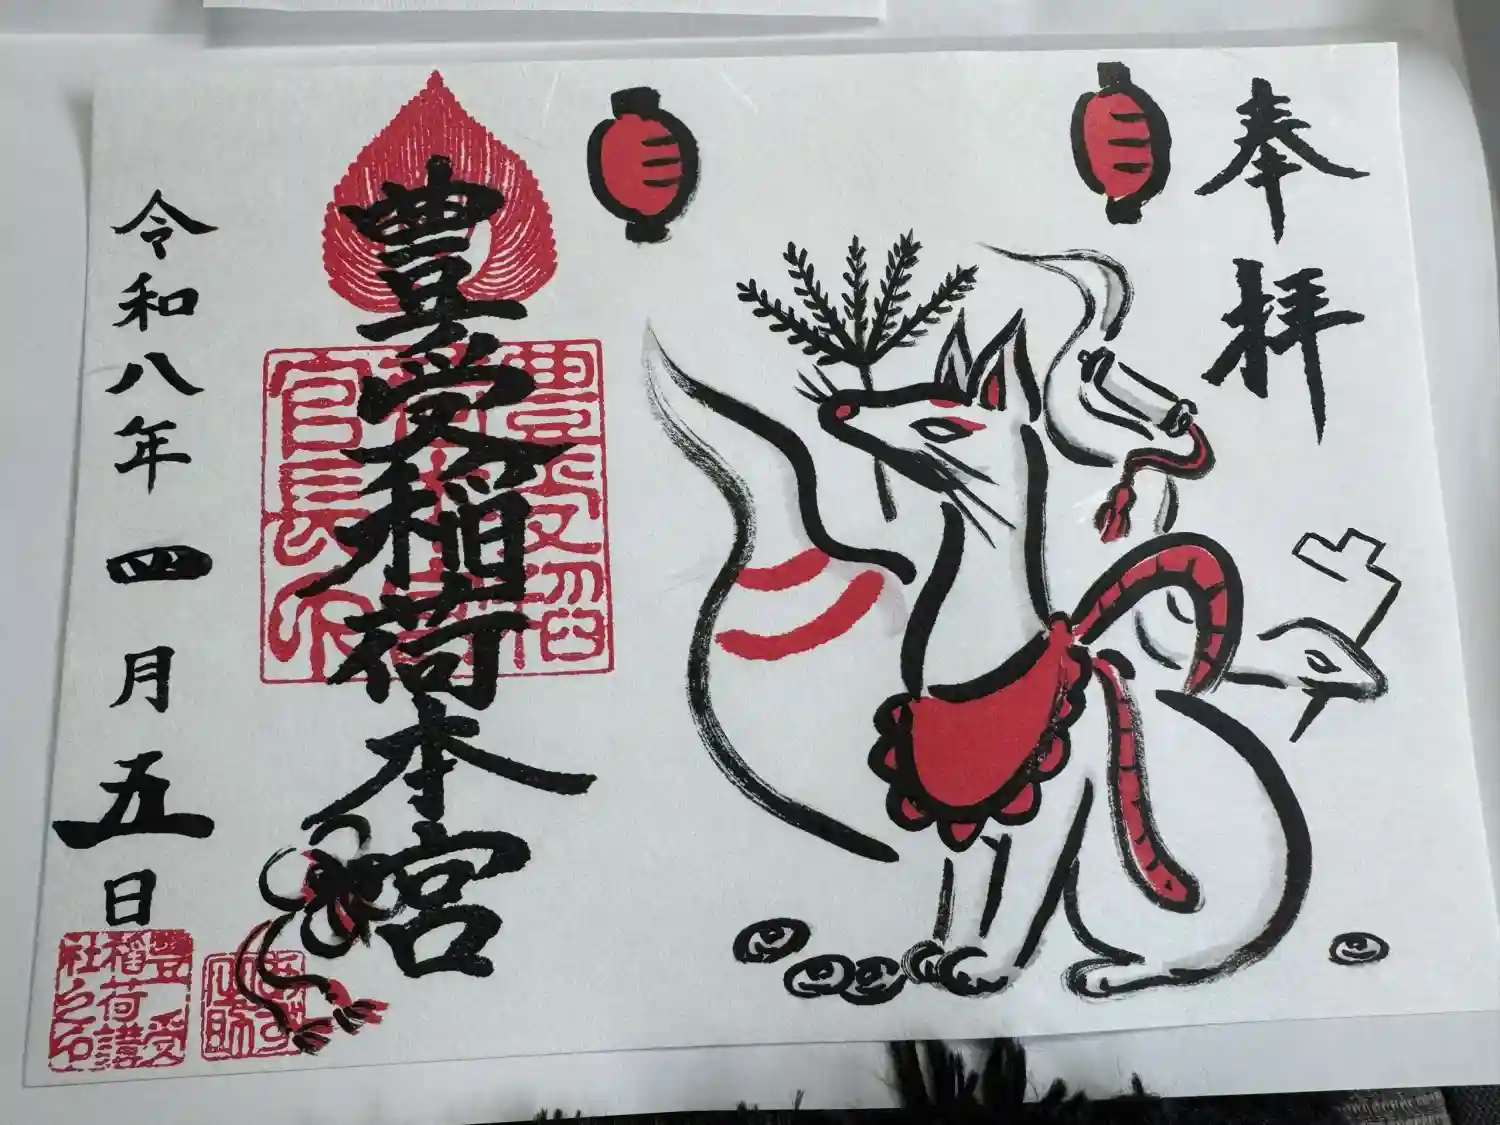 奉拝
豊受稲荷本宮
令和八年四月五日
豊受
稲荷講
社之印